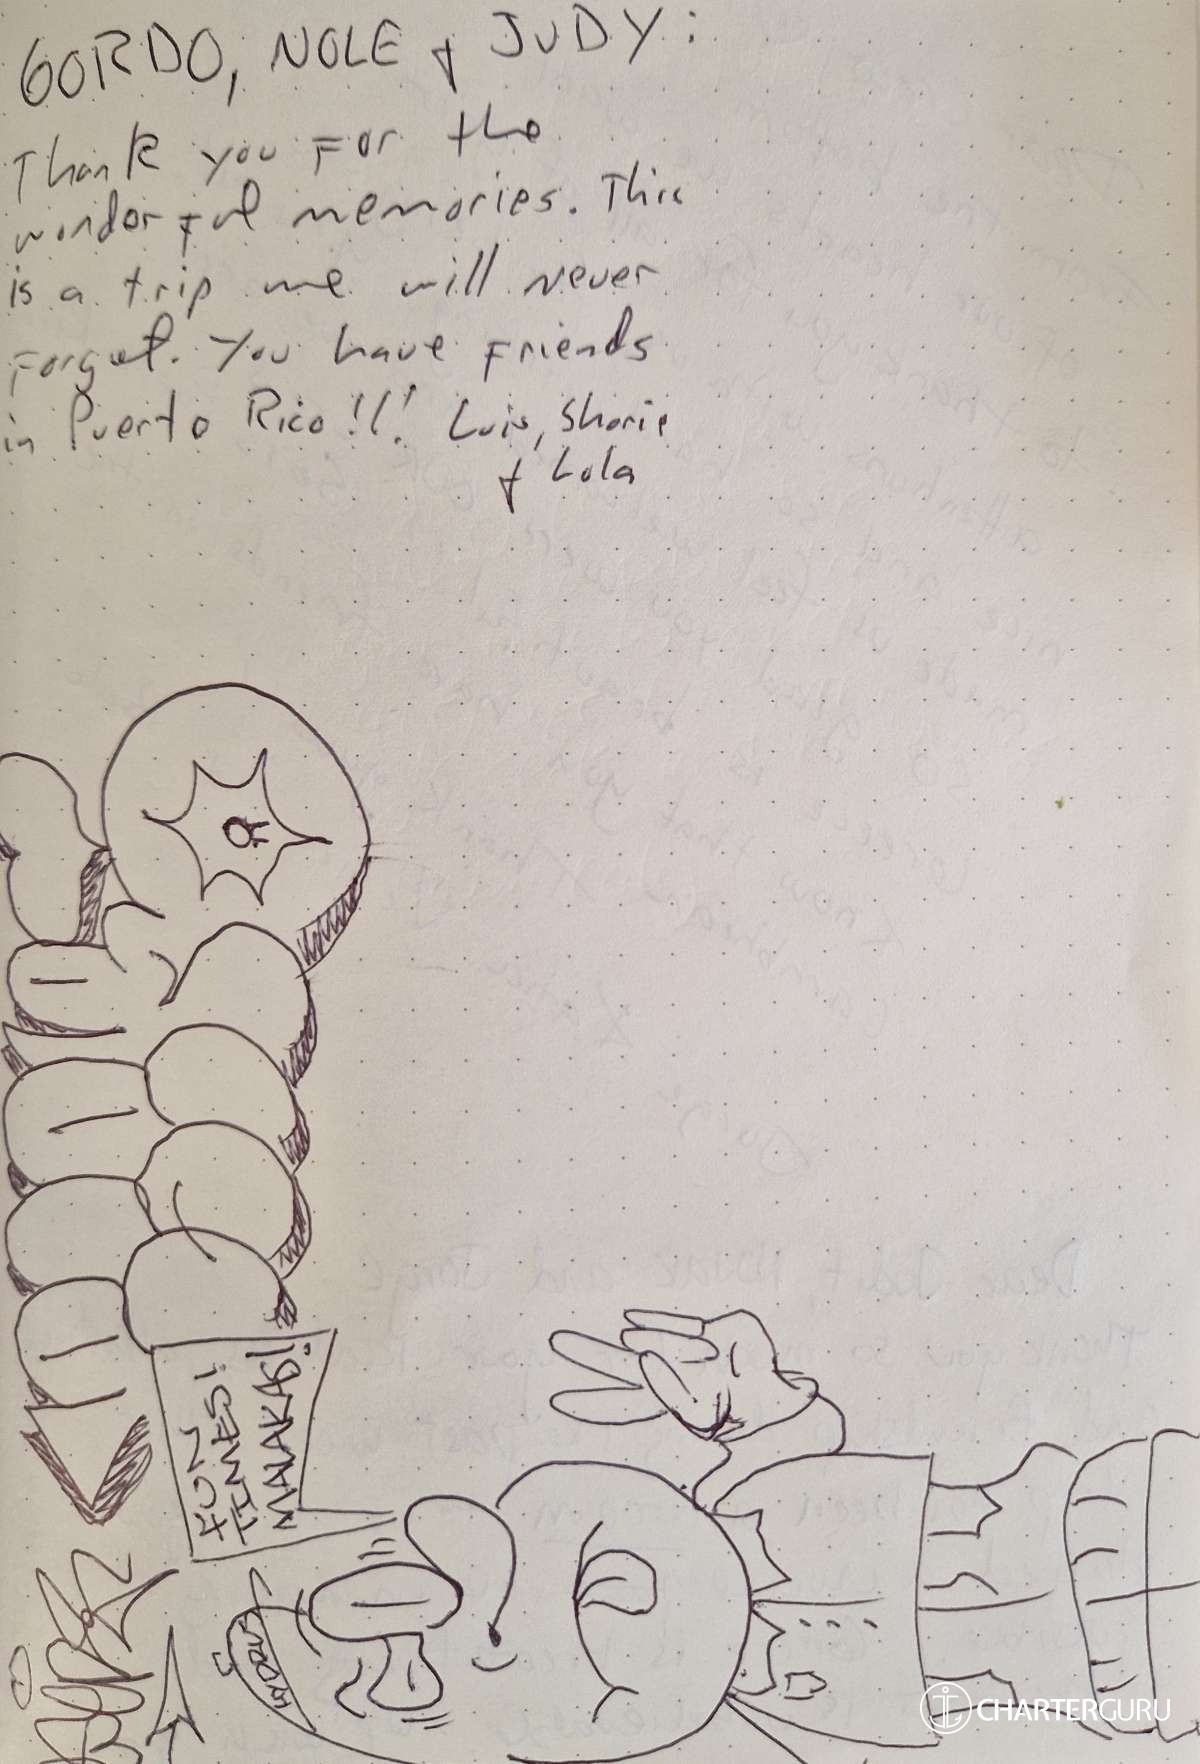 GORDO, NOLE & JUDY:
Thank you For the
wonderful memories. This
is a trip we will never
Forget. You have Friends
in Puerto Rico!!! Luis, Sharie
& Lola
FUN
TIMES!
MALAKAS!
HYDRA
CHARTERGURU